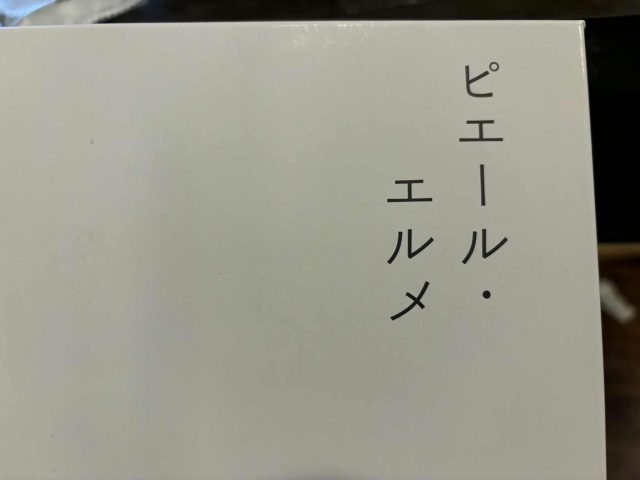 ピエール・
エルメ